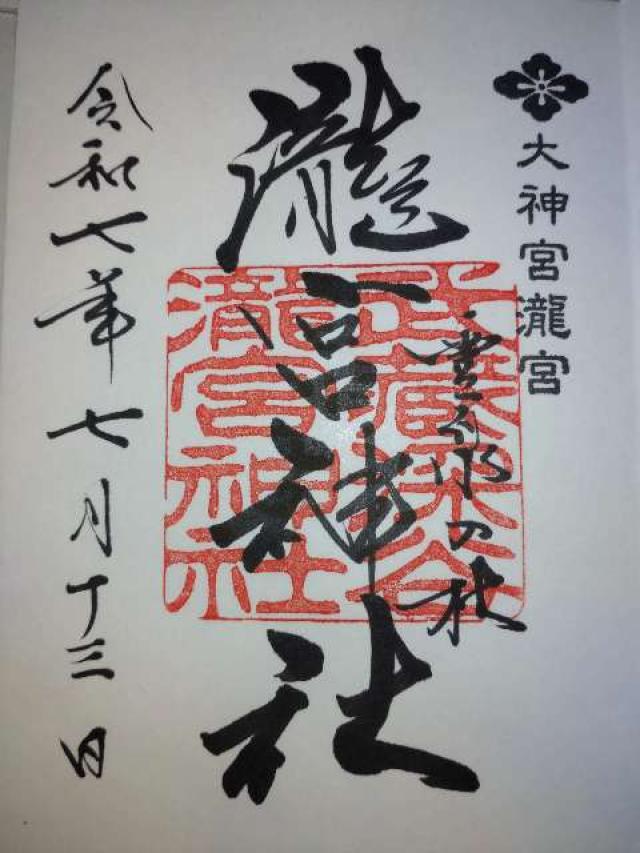 大神宮瀧宮
霊泉の杜
瀧宮神社
武蔵深谷
瀧宮神社
令和七年七月十三日